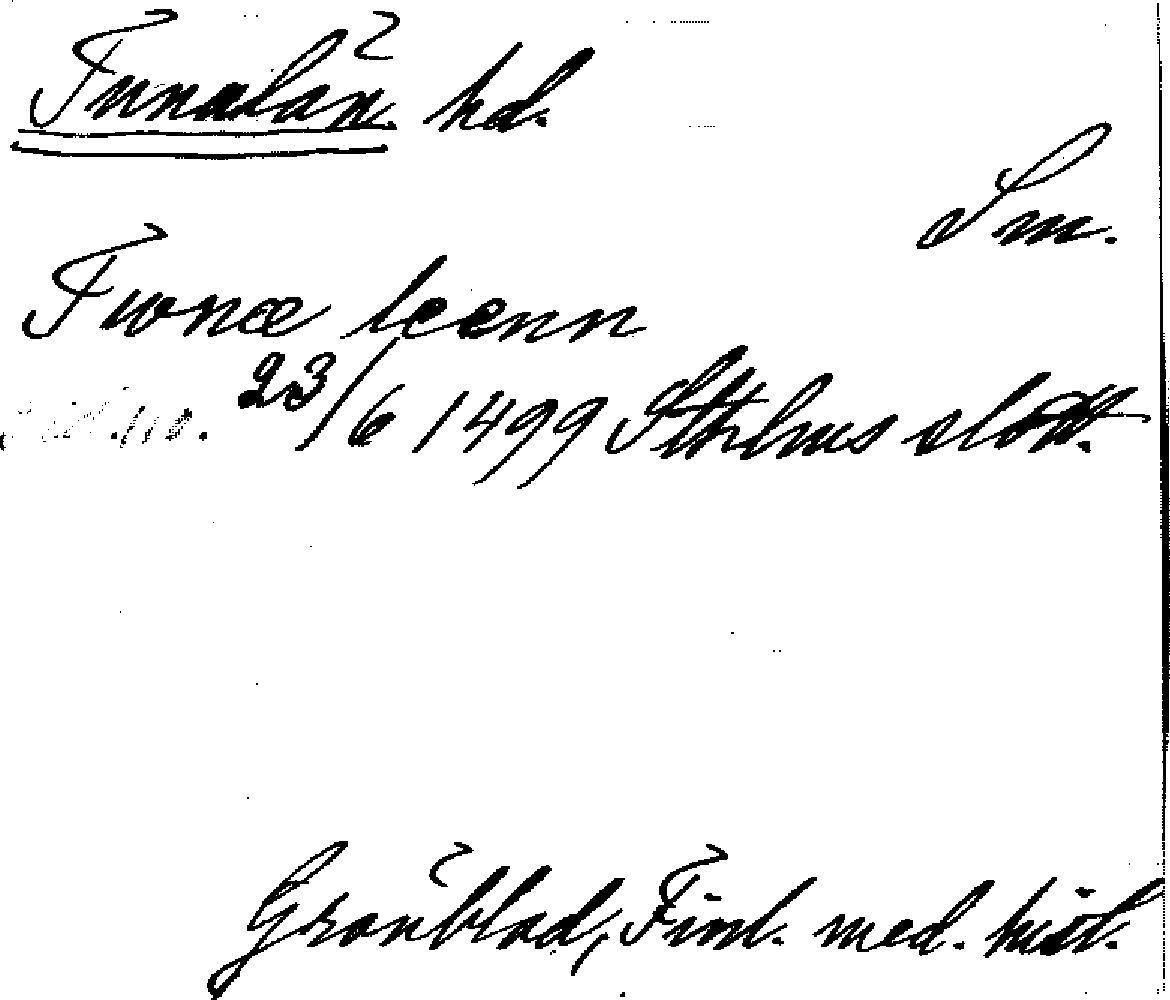 Tunalän hd.
Sm.
Twnæ leenn
23/6 1499 Sthlms slott.
Grönblad, Finl. med. hist.